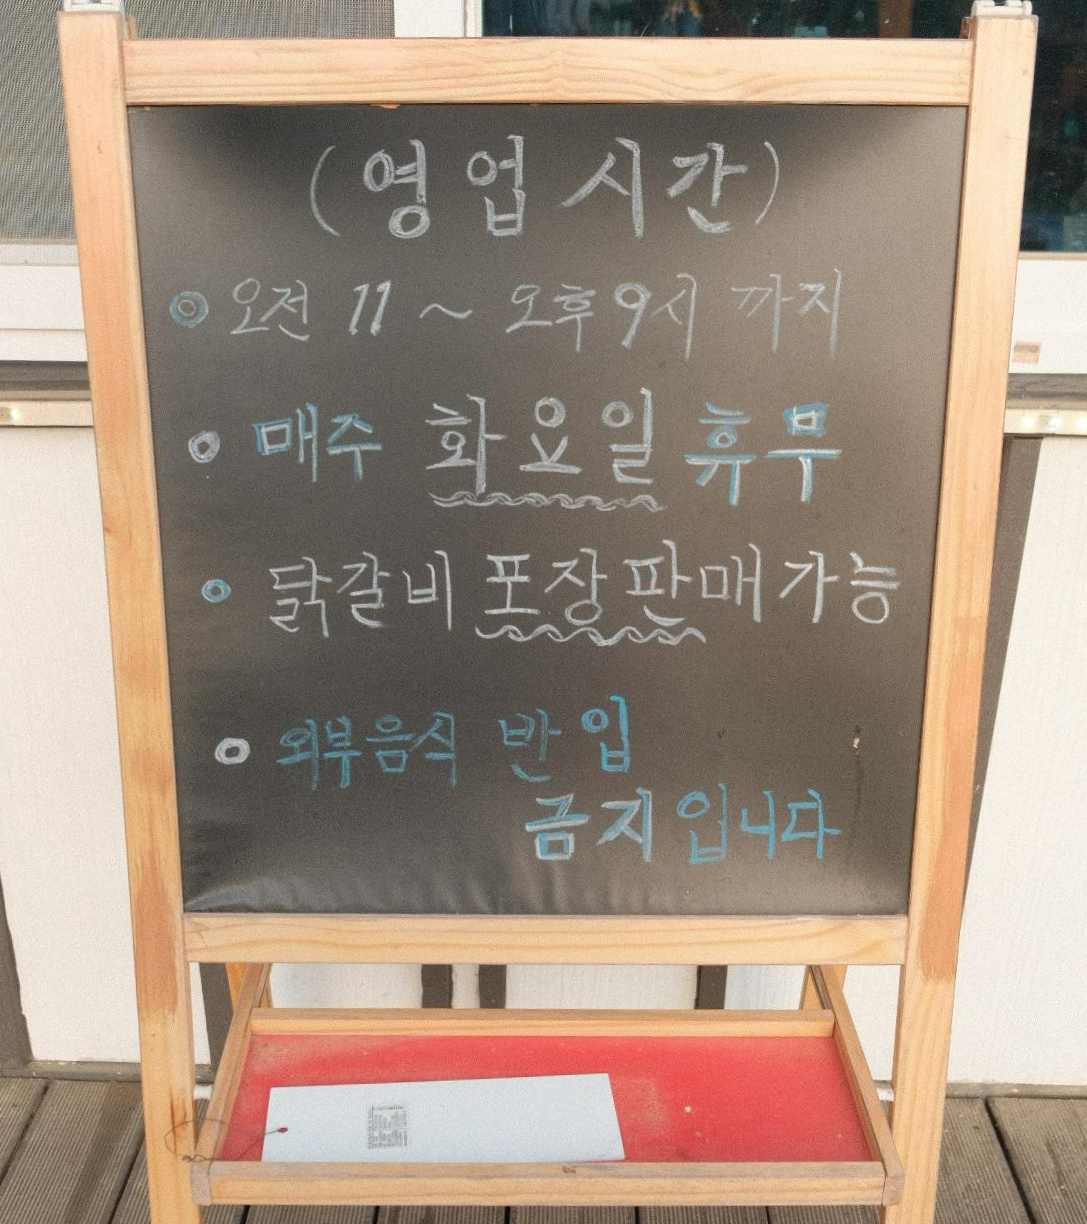 (영업시간)
오전 11 ~ 오후 9시 까지
매주 화요일 휴무
닭갈비 포장판매가능
외부음식 반입
금지입니다